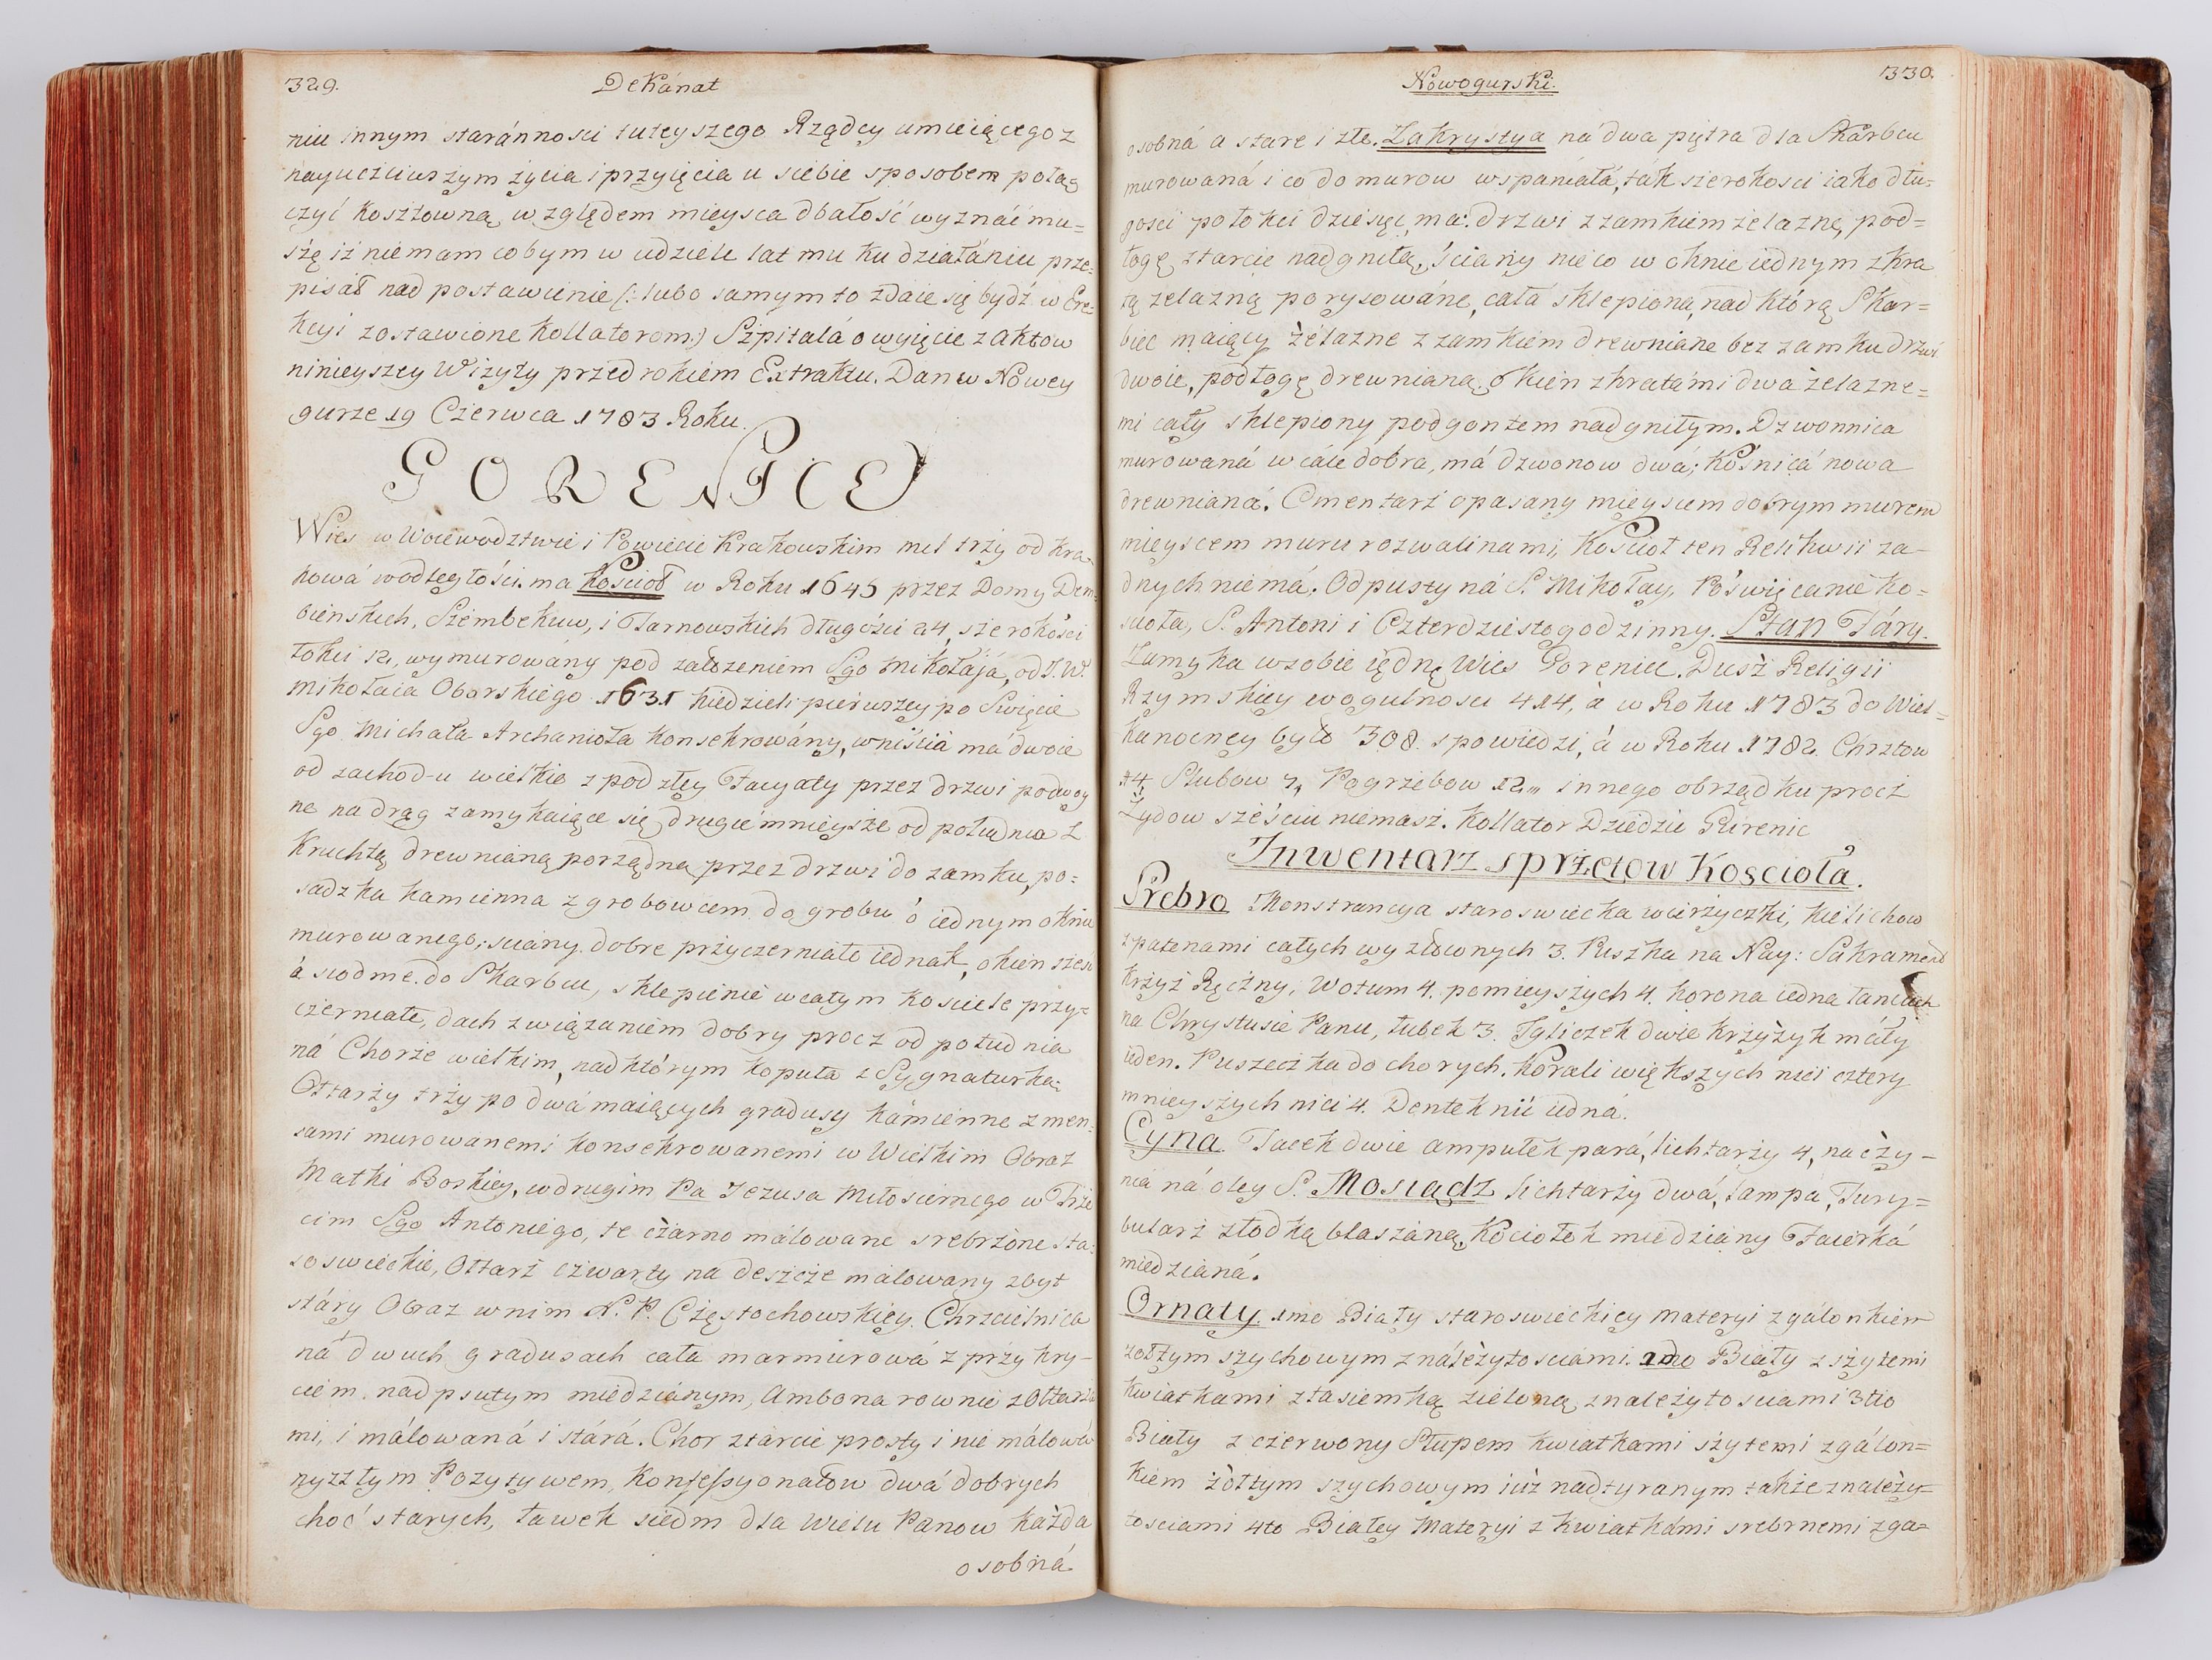 329.
DeKánat
niu innym staránnosci tuteyszego Rządcy umieiącego z
nayuczciwszym życia i przyięcia u siebie sposobem połą=
czyć kosztowną względem mieysca dbałość wyznáć mu=
szę iż nie mam co bym w udziele lat mu ku działániu prze=
pisał nad postawienie (: lubo samym to zdaie się bydź w Ere=
kcyi zostawione Kollatorom:) Szpitalá o wyięcie z Aktow
ninieyszey Wizyty przed rokiem Extraktu. Dan w Nowey
gurze 19 Czerwca 1783 Roku.
GORENICE
Wies w Woiewodztwie i Powiecie Krakowskim mil trzy od Kra=
kowá wodległości. ma Kościoł w Roku 1645 przez Domy Dem=
bienskich, Szembekuw, i Tarnowskich długości 24, szerokości
łokci 12, wymurowány pod załozeniem Sgo Mikołaja, od J. W.
Mikołaia Oborskiego 1631 Niedzieli pierwszey po Swięcie
Sgo Michała Archanioła konsekrowány, wniściá má dwoie
od zachodu wielkie z pod złey Facyaty przez drzwi podwoy
ne na drąg zamykaiące się, drugie mnieysze od południa z
Kruchtą drewnianą porządną przez drzwi do zamku, po=
sadzka kamienna z grobowcem do grobu ó iednym oknie
murowanego; sciany dobre przyczerniałe iednak, okien sześć
á siodme do Skarbcu, sklepienie w całym kosciele przy=
czerniałe, dach z wiązaniem dobry procz od południa
ná Chorze wielkim, nad którym kopuła z Sygnaturką:
Ołtarzy trzy po dwá maiących gradusy kámienne z men=
sami murowanemi konsekrowanemi w Wielkim Obraz
Matki Boskiey, w drugim Pa Jezusa Miłosiernego w Trze
cim Sgo Antoniego, te czarno málowane srebrzone sta=
roswieckie, Ołtarz czwarty na deszcze málowany zbyt
stáry Obraz w nim N. P. Częstochowskiey. Chrzcielnica
ná dwuch gradusach cała marmurowá z przykry-
ciem nadpsutym miedziánym, Ambona rownie z Ołtarza
mi, i málowaná i stárá. Chor ztárcic prosty i nie málowá
ny z złym Pozytywem, Konfessyonałow dwá dobrych
choć starych, ławek siedm dla Wielu Panow każda
osobná
Nowogurski.
330.
osobná a stare i złe. Zakrystya ná dwa piętra dla Skarbcu
murowaná i co do murow wspaniałá, ták szerokosci iako dłu=
gosci po łokci dziesięć, ma: drzwi z zamkiem żelazne, pod=
łogę z tarcic nadgniłą, ściany nieco w oknie iednym z kra
tą zelazną porysowáne, cała sklepiona, nad którą Skar=
biec maiący żelazne z zamkiem drewniane bez zamku drzwi
dwoie, podłogę drewnianą, okien z kratámi dwa żelazne=
mi cały sklepiony pod gontem nadgniłym. Dzwonnica
murowaná w cale dobra, má dzwonow dwá; Kośnicá nowa
drewnianá. Cmentarz opasany mieyscem dobrym murem
mieyscem muru rozwalinami, Kościoł ten Relikwii ża-
dnych niemá. Odpusty ná S. Mikołay, Poświęcanie Ko=
scioła, S. Antoni i Czterdziestogodzinny. Stan Fáry.
Zamyka w sobie iędnę Wies Gorenice. Dusz Religii
Rzymskiey wogulnosci 414, à w Roku 1783 do Wiel=
kanocney było 308. spowiedzi, á w Roku 1782. Chrztow
14, Slubow 7, Pogrzebow 12, innego obrządku procz
Zydow sześciu niemasz. Kollator Dziedzic Gurenic
Inwentarz sprzętow Koscioła.
Srebro Monstrancya staroswiecka wieżyczki, kielichow
z patenami całych wyzłownych 3. Puszka na Nay: Sakrament
krzyż Ręczny, Wotum 4. pomieyszych 4. korona iedna łancuch
na Chrystusie Panu, tubek 3. Igliczek dwie krzyżyk máły
ieden. Puszeczka do chorych. Korali większych nici cztery
mnieyszych nici 4. Dentek nić iedná.
Cyna. Tacek dwie ampułek pará, lichtarzy 4, naczy-
nia ná oley S. Mosiądz lichtarzy dwá, lampa, Tury=
bularz z łodką blaszaną, Kociołek miedziany Facerká
miedzianá.
Ornaty. 1mo Biały staroswieckiey materyi z gálonkiem
żołtym szychowym z náleżytosciami. 2do Biały z szytemi
kwiatkami z tasiemką zieloną z należytosciami 3tio
Biały z czerwony Słupem kwiatkami szytemi z gálon=
kiem żołtym szychowym iuż nadtyranym także z należy=
tosciami 4to Białey Materyi z kwiatkámi srebrnemi z ga=